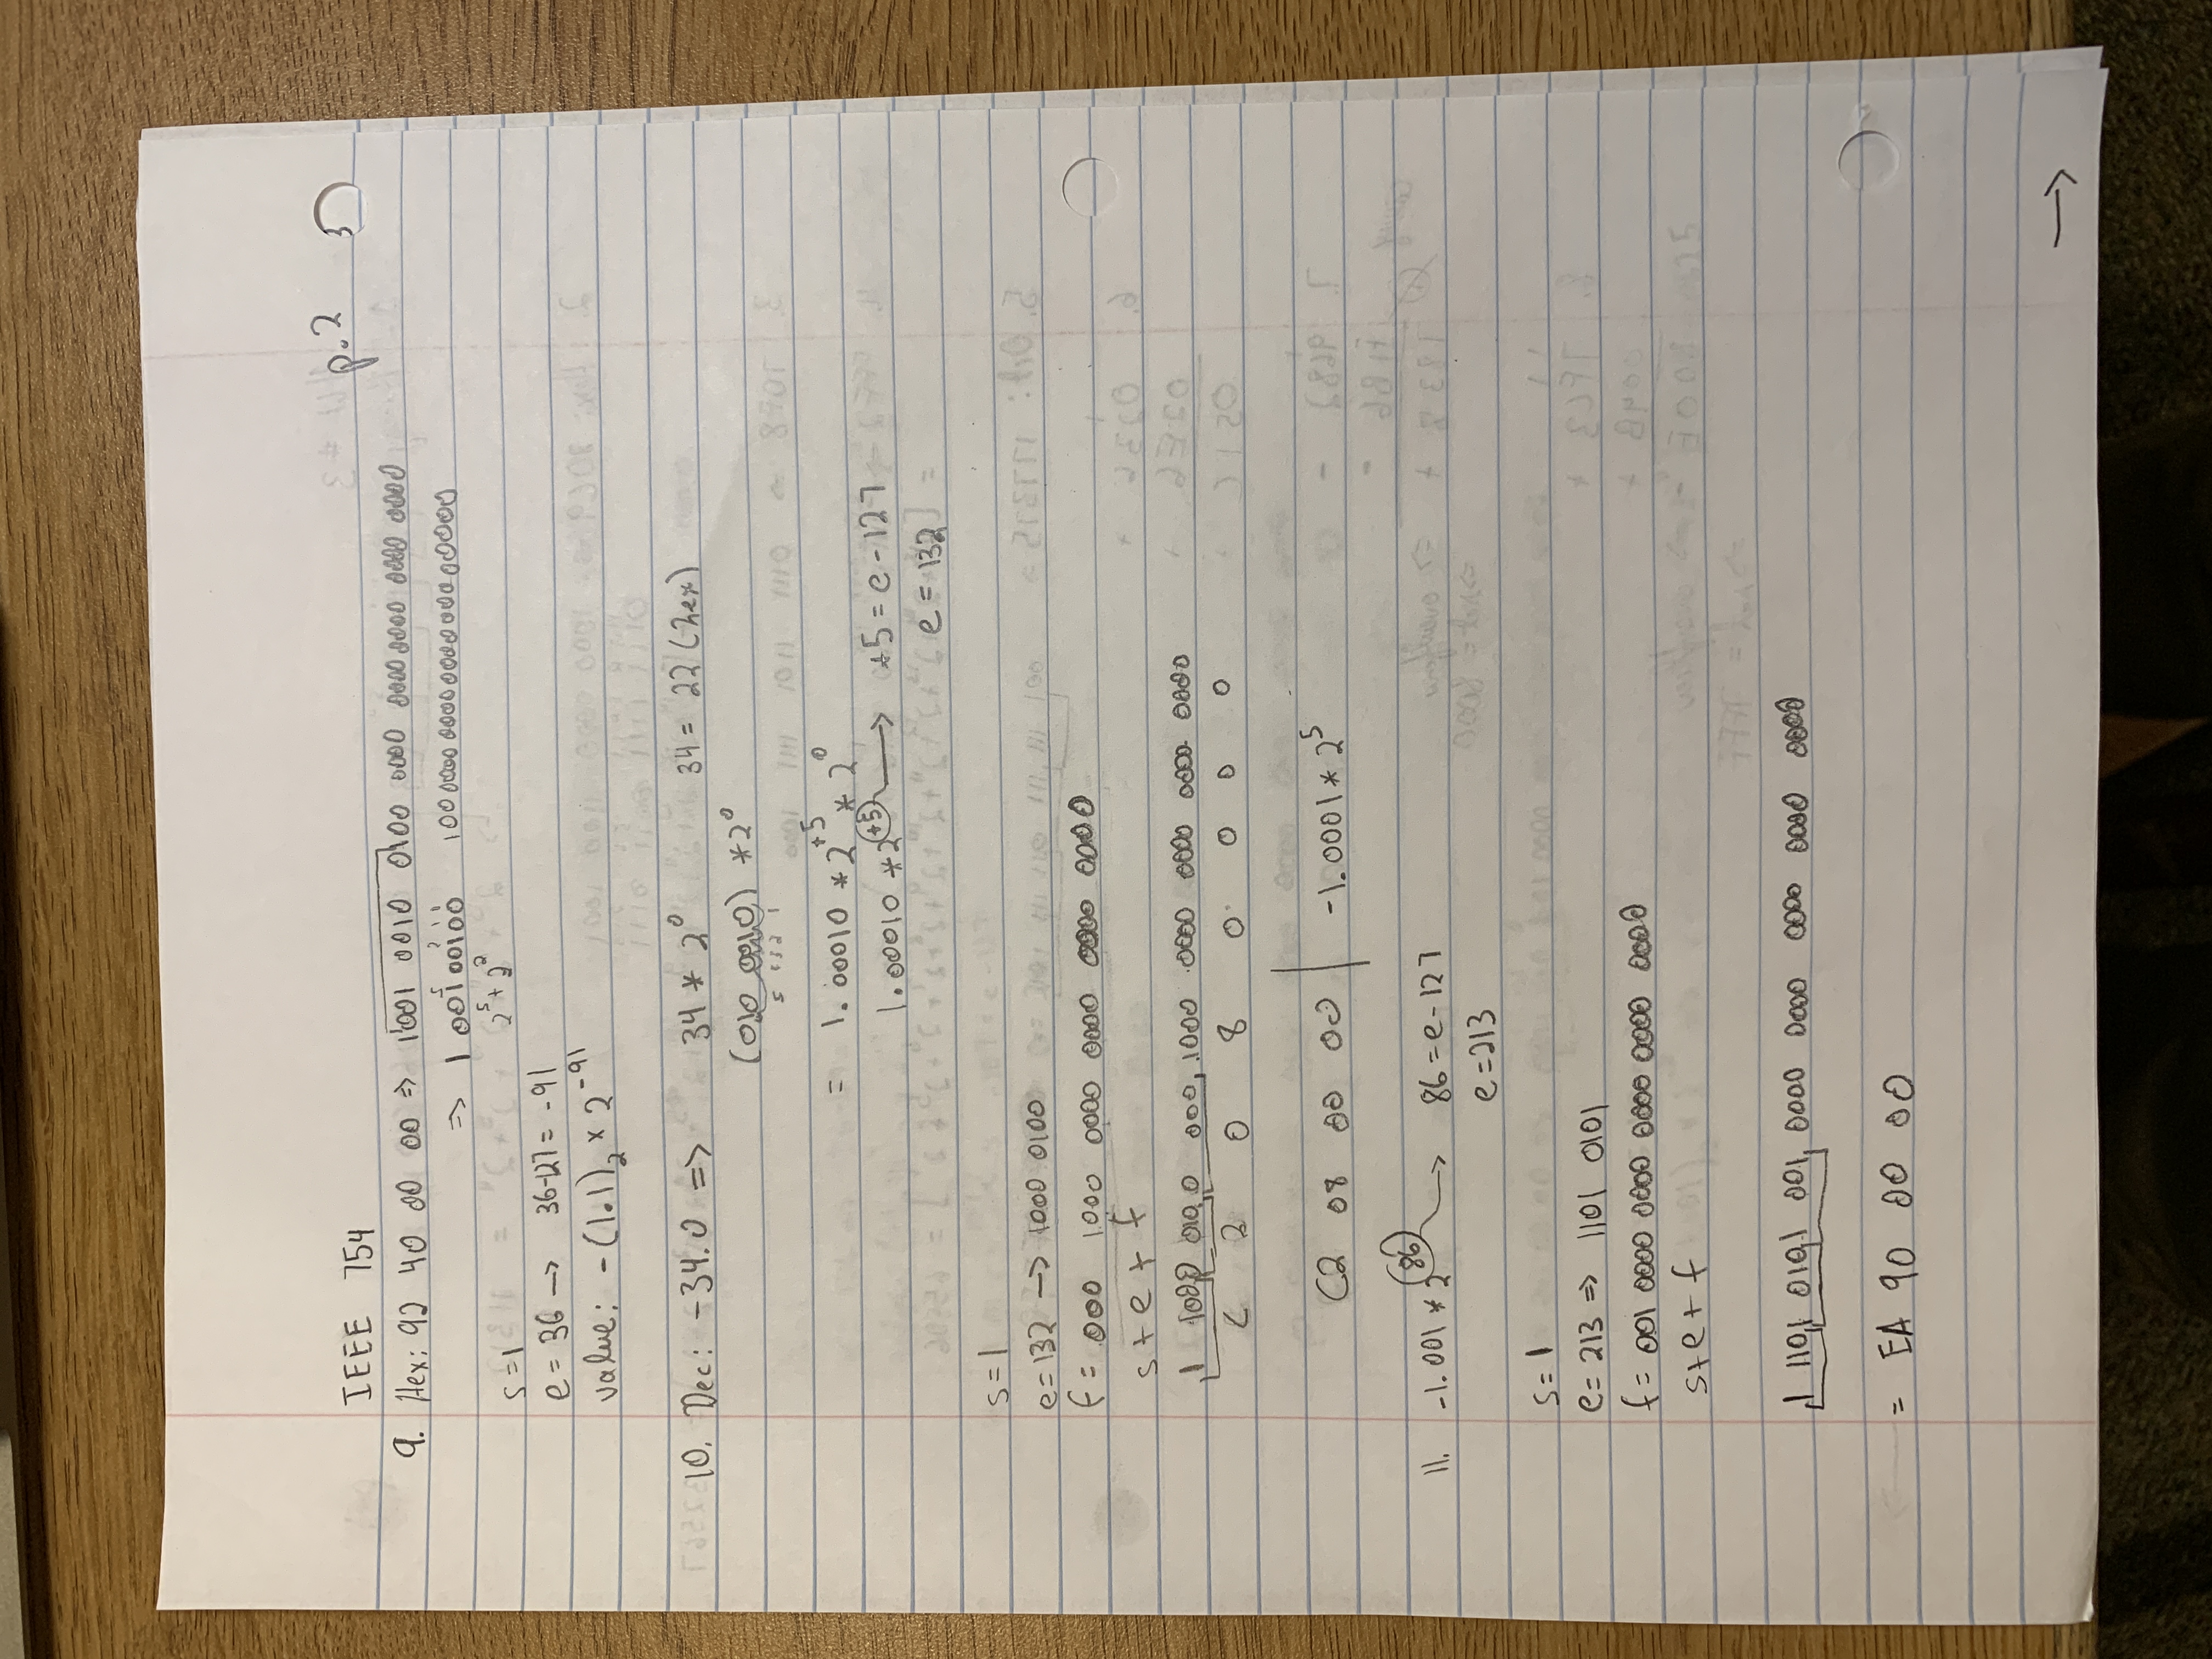 p. 2
IEEE 754
9. Hex: 92 40 00 00 => 1001 0010 0100 0000 0000 0000 0000 0000
=> 1 00100100 10000000000000000000000
s=1 2^5 + 2^2
e = 36 -> 36-127 = -91
value: -(1.1)₂ × 2^-91
10. Dec: -34.0 => 34 * 2^0 34 = 22 (hex)
(010 0010) * 2^0
5 4 3 2 1
= 1.00010 * 2^+5 * 2^0
1.00010 * 2^+5 -> +5 = e - 127
e = 132
s=1
e=132 -> 1000 0100
f = 000 1000 0000 0000 0000 0000
s + e + f
1 1000 0100 000 1000 0000 0000 0000 0000
C 2 0 8 0 0 0 0
C2 08 00 00 | -1.0001 * 2^5
11. -1.001 * 2^86 -> 86 = e - 127
e = 213
s = 1
e = 213 => 1101 0101
f = 001 0000 0000 0000 0000 0000
s+e+f
1 1101 0101 001 0000 0000 0000 0000 0000
= EA 90 00 00
->